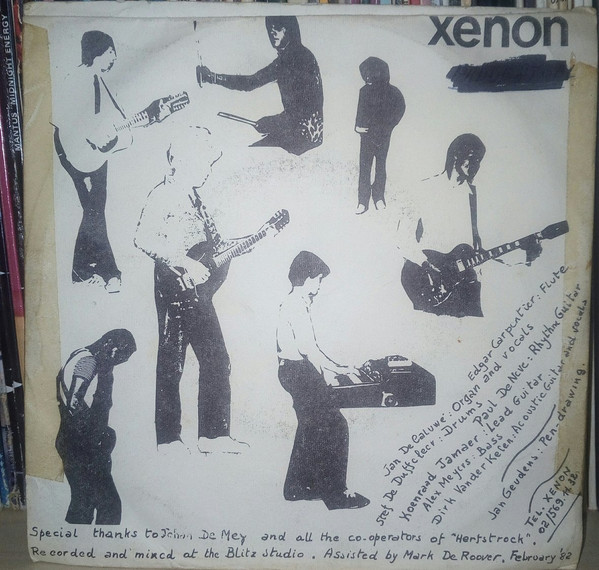 xenon
MANTUS MIDNIGHT ENERGY
Edgar Carpentier: Flute
Jan De Caluwe: Organ and vocals
Stef De Dustcleer: Drums
Paul De Neve: Rhythm Guitar
Koenraad Jamaer: Lead Guitar
Alex Meyers: Bass
Dirk Vander Kelen: Acoustic Guitar and vocals
Jan Geudens: Pen-drawing.
TEL. XENON
02/569.
Special thanks to Johan De Mey and all the co-operators of "Hertstrock".
Recorded and mixed at the Blitz studio. Assisted by Mark De Roover, February '82